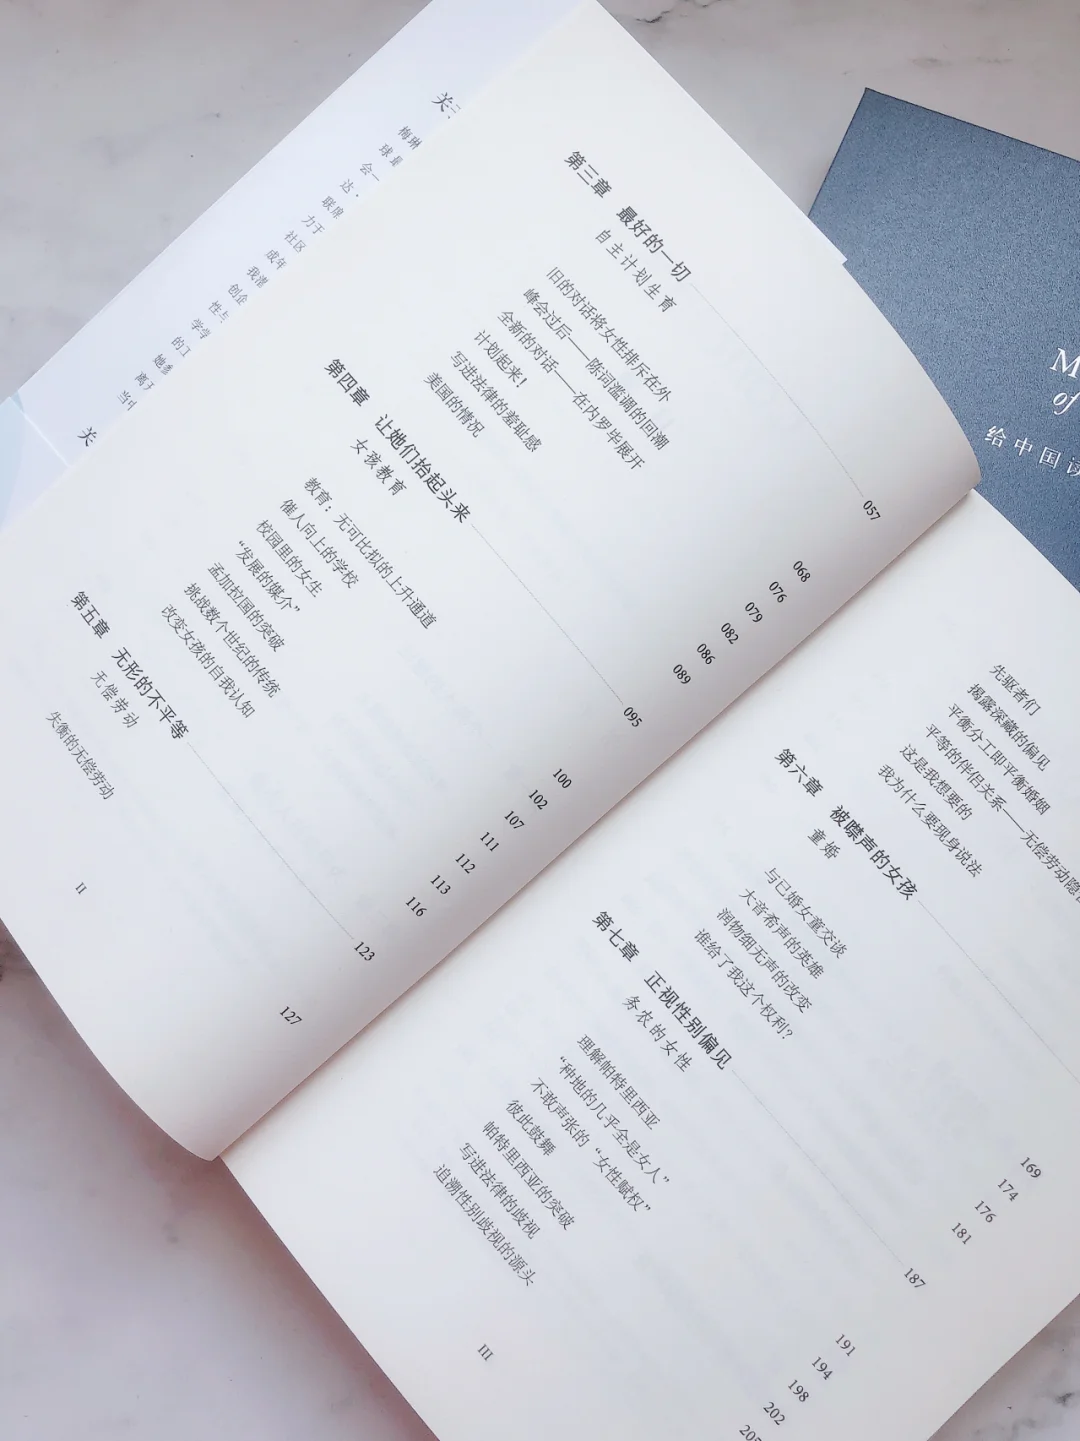 第三章 最好的一切 057
自主计划生育
旧的对话将女性排斥在外 068
峰会过后——陈词滥调的回潮 076
全新的对话——在内罗毕展开 079
计划起来！ 082
写进法律的羞耻感 086
美国的情况 089
第四章 让她们抬起头来 095
女孩教育
教育：无可比拟的上升通道 100
催人向上的学校 102
校园里的女生 107
“发展的媒介” 111
孟加拉国的突破 112
挑战数个世纪的传统 113
改变女孩的自我认知 116
第五章 无形的不平等 123
无偿劳动
失衡的无偿劳动 127
II
先驱者们
揭露深藏的偏见
平衡分工即平衡婚姻
平等的伴侣关系——无偿劳动隐
这是我想要的
我为什么要现身说法
第六章 被噤声的女孩
童婚
与已婚女童交谈 169
大音希声的英雄 174
润物细无声的改变 176
谁给了我这个权利？ 181
第七章 正视性别偏见 187
务农的女性
理解帕特里西亚 191
“种地的几乎全是女人” 194
不敢声张的“女性赋权” 198
彼此鼓舞 202
帕特里西亚的突破
写进法律的歧视
追溯性别歧视的源头
III
关
梅琳
球最
会一
达·
联席
力于
社区
成年
我潜
创企
性与
学学
的工
她多
离开
当中
关
M
of
给中国读